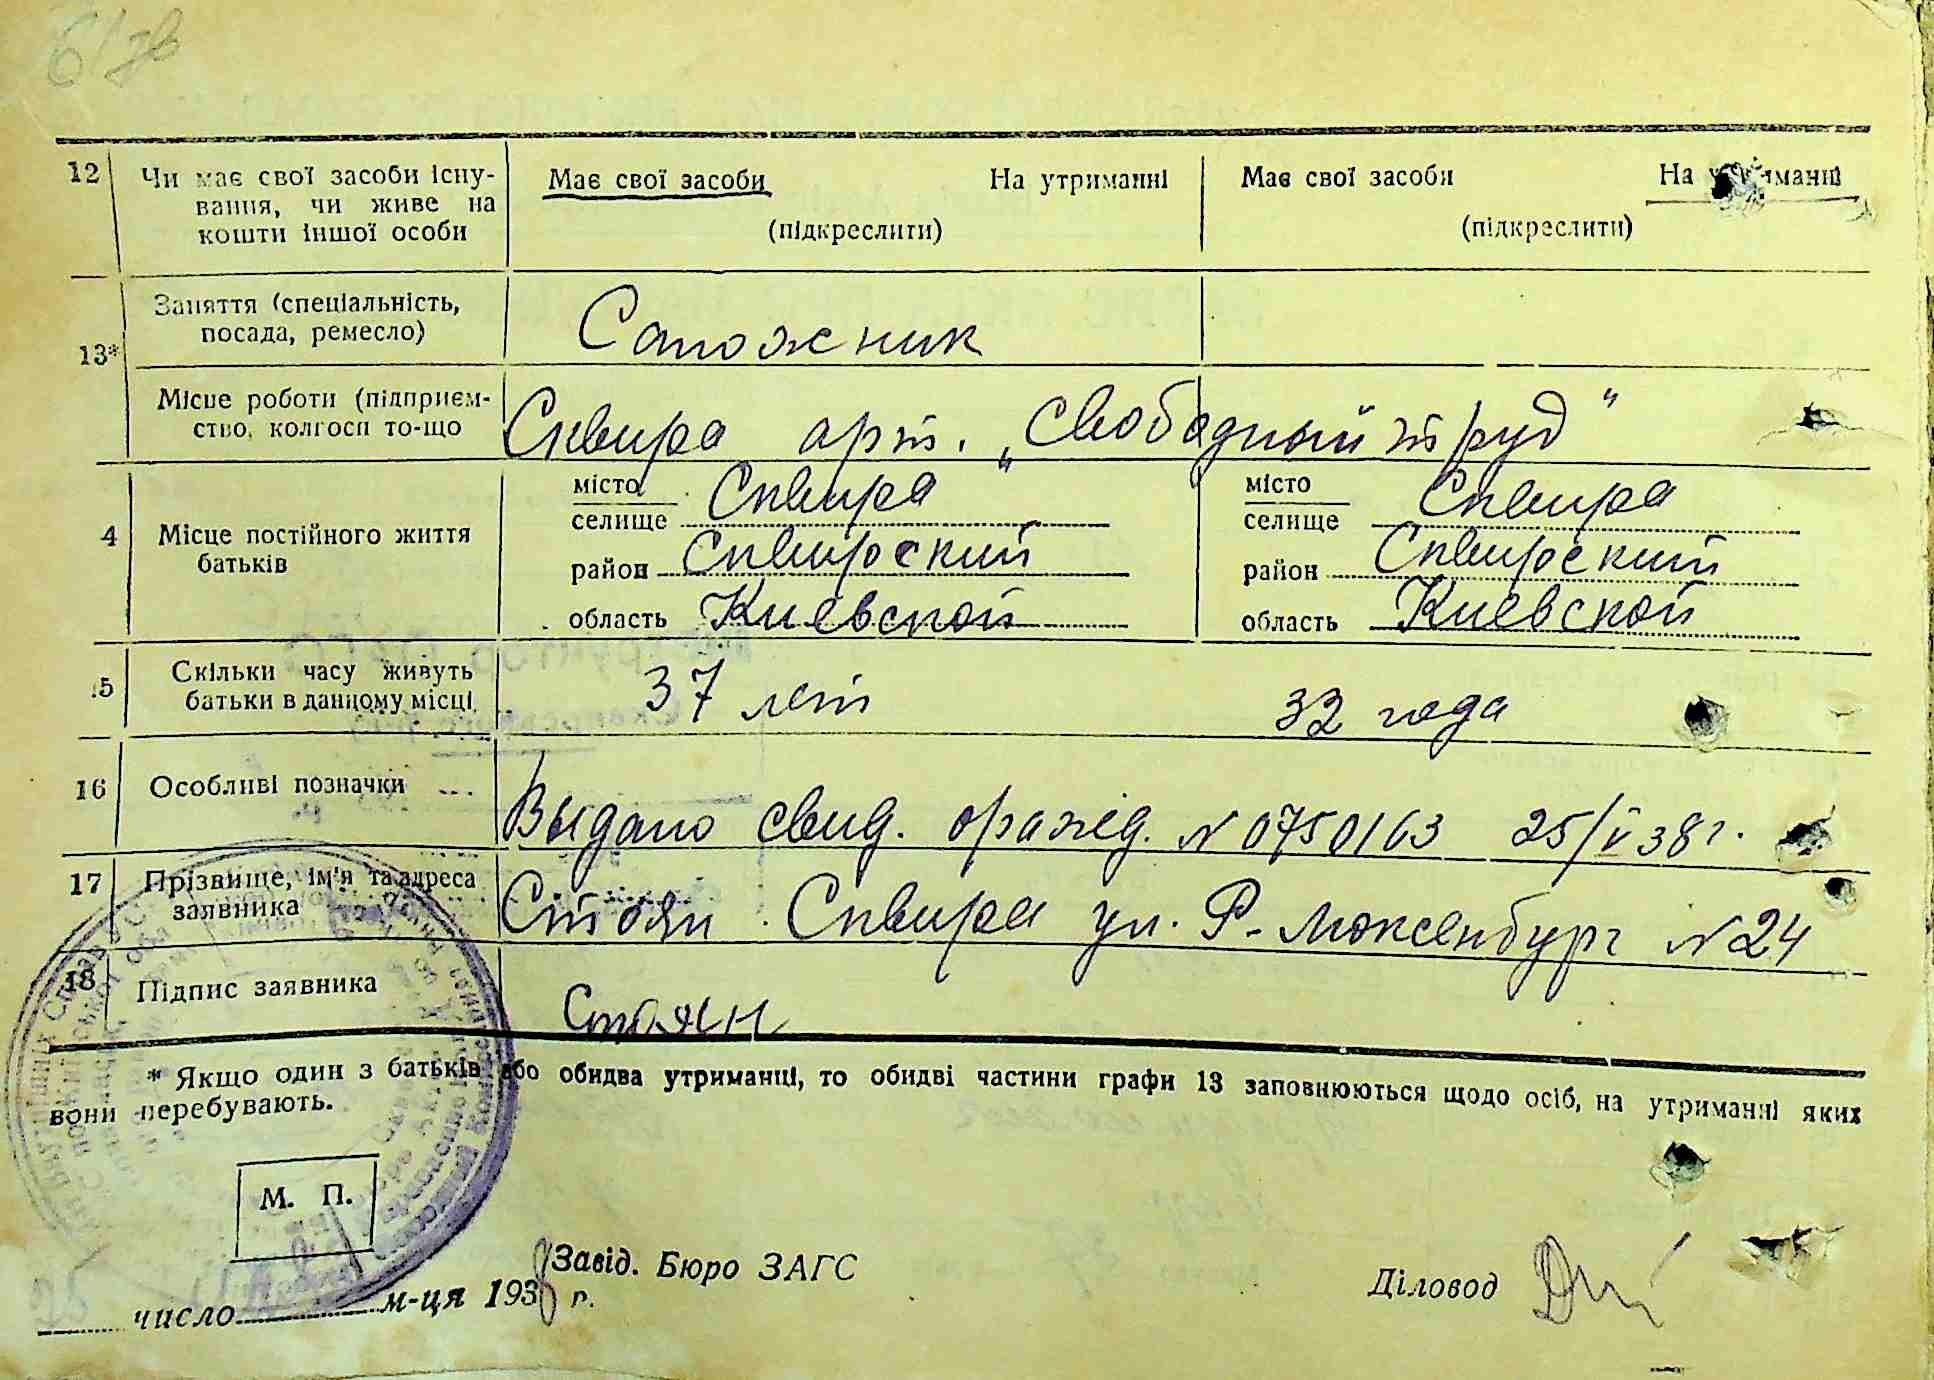 12 Чи має свої засоби існу-
вання, чи живе на
кошти іншої особи
Має свої засоби На утриманні
(підкреслити)
Має свої засоби На утриманні
(підкреслити)
13* Заняття (спеціальність,
посада, ремесло)
Сапожник
Місце роботи (підприєм-
ство, колгосп то-що
Сквира арт. „Свободный труд"
4 Місце постійного життя
батьків
місто
селище Сквира
район Сквирский
область Киевской
місто
селище Сквира
район Сквирский
область Киевской
5 Скільки часу живуть
батьки в данному місці
37 лет
32 года
16 Особливі позначки
Выдано свид. о рожд. N 0750163 25/V 38 г.
17 Прізвище, ім'я та адреса
заявника
Стоян Сквира ул. Р. Люксенбург N 24
18 Підпис заявника
Стоян
* Якщо один з батьків або обидва утриманці, то обидві частини графи 13 заповнюються щодо осіб, на утриманні яких
вони перебувають.
М. П.
Завід. Бюро ЗАГС
Діловод
25 число м-ця 1938 р.